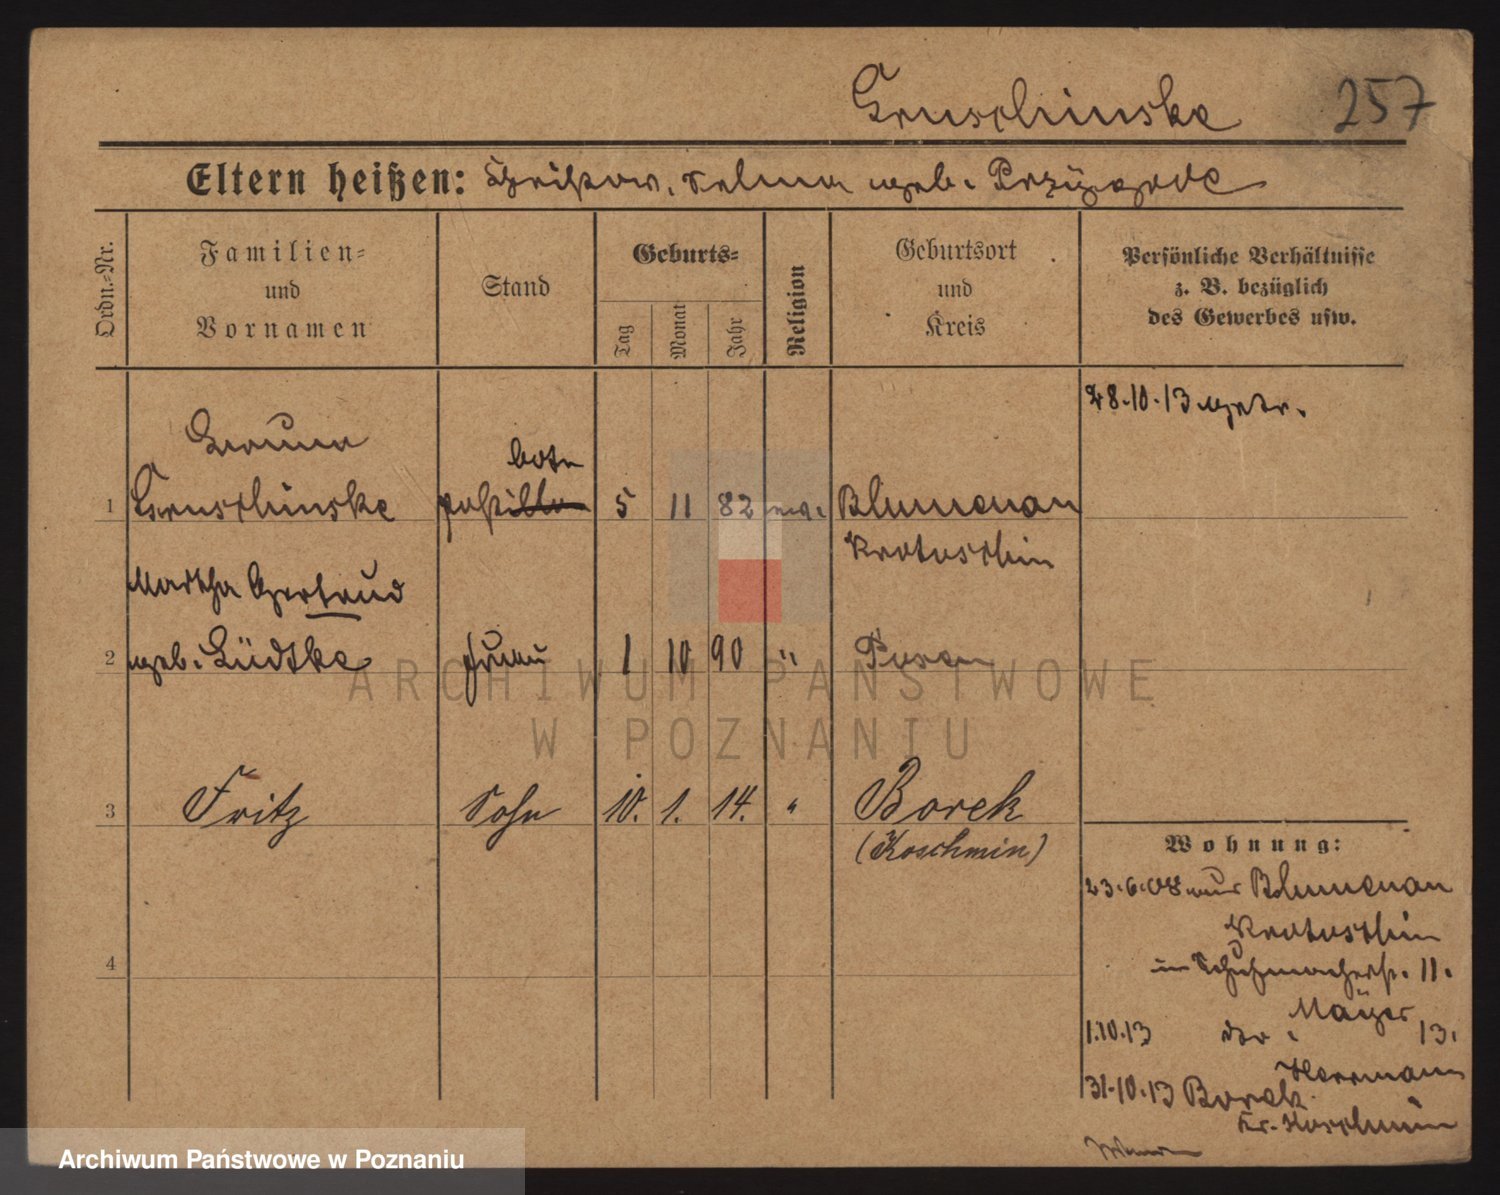 Gruschinske 257
Eltern heißen: Selma geb.
Ordn.-Nr.
Familien-
und
Vornamen
Stand
Geburts-
Tag
Monat
Jahr
Religion
Geburtsort
und
Kreis
Persönliche Verhältnisse
z. B. bezüglich
des Gewerbes usw.
28.10.13 getr.
Bruno
bote
1 Gruschinske 5 11 82 Blumenau
Krotoschin
Martha Gertrud
2 geb. Lüdtke Frau 1 10 90 " Posen
3 Fritz Sohn 10. 1. 14. " Borek
(Koschmin)
4
Wohnung:
23.6.08 aus Blumenau
Krotoschin
in Schuhmacherstr. 11.
1.10.13 13.
Herrmann
31.10.13 Borek
Kr. Koschmin
ARCHIWUM PAŃSTWOWE
W POZNANIU
Archiwum Państwowe w Poznaniu